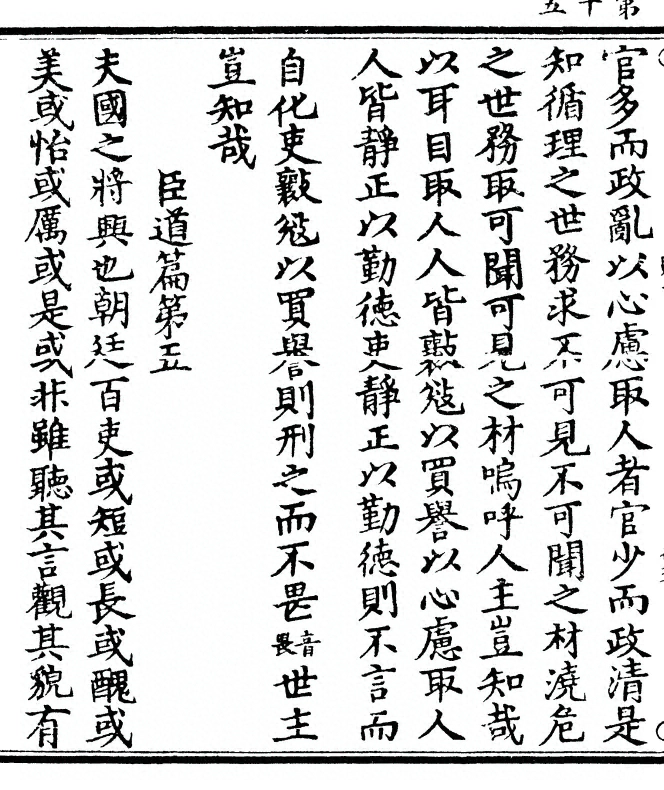 第十五
官多而政亂以心慮取人者官少而政清是
知循理之世務求不可見不可聞之材澆危
之世務取可聞可見之材嗚呼人主豈知哉
以耳目取人人皆以買譽以心慮取人
人皆靜正以勤德吏靜正以勤德則不言而
自化吏以買譽則刑之而不畏音畏世主
豈知哉
臣道篇第五
夫國之將興也朝廷百吏或短或長或醜或
美或怡或厲或是或非雖聽其言觀其貌有